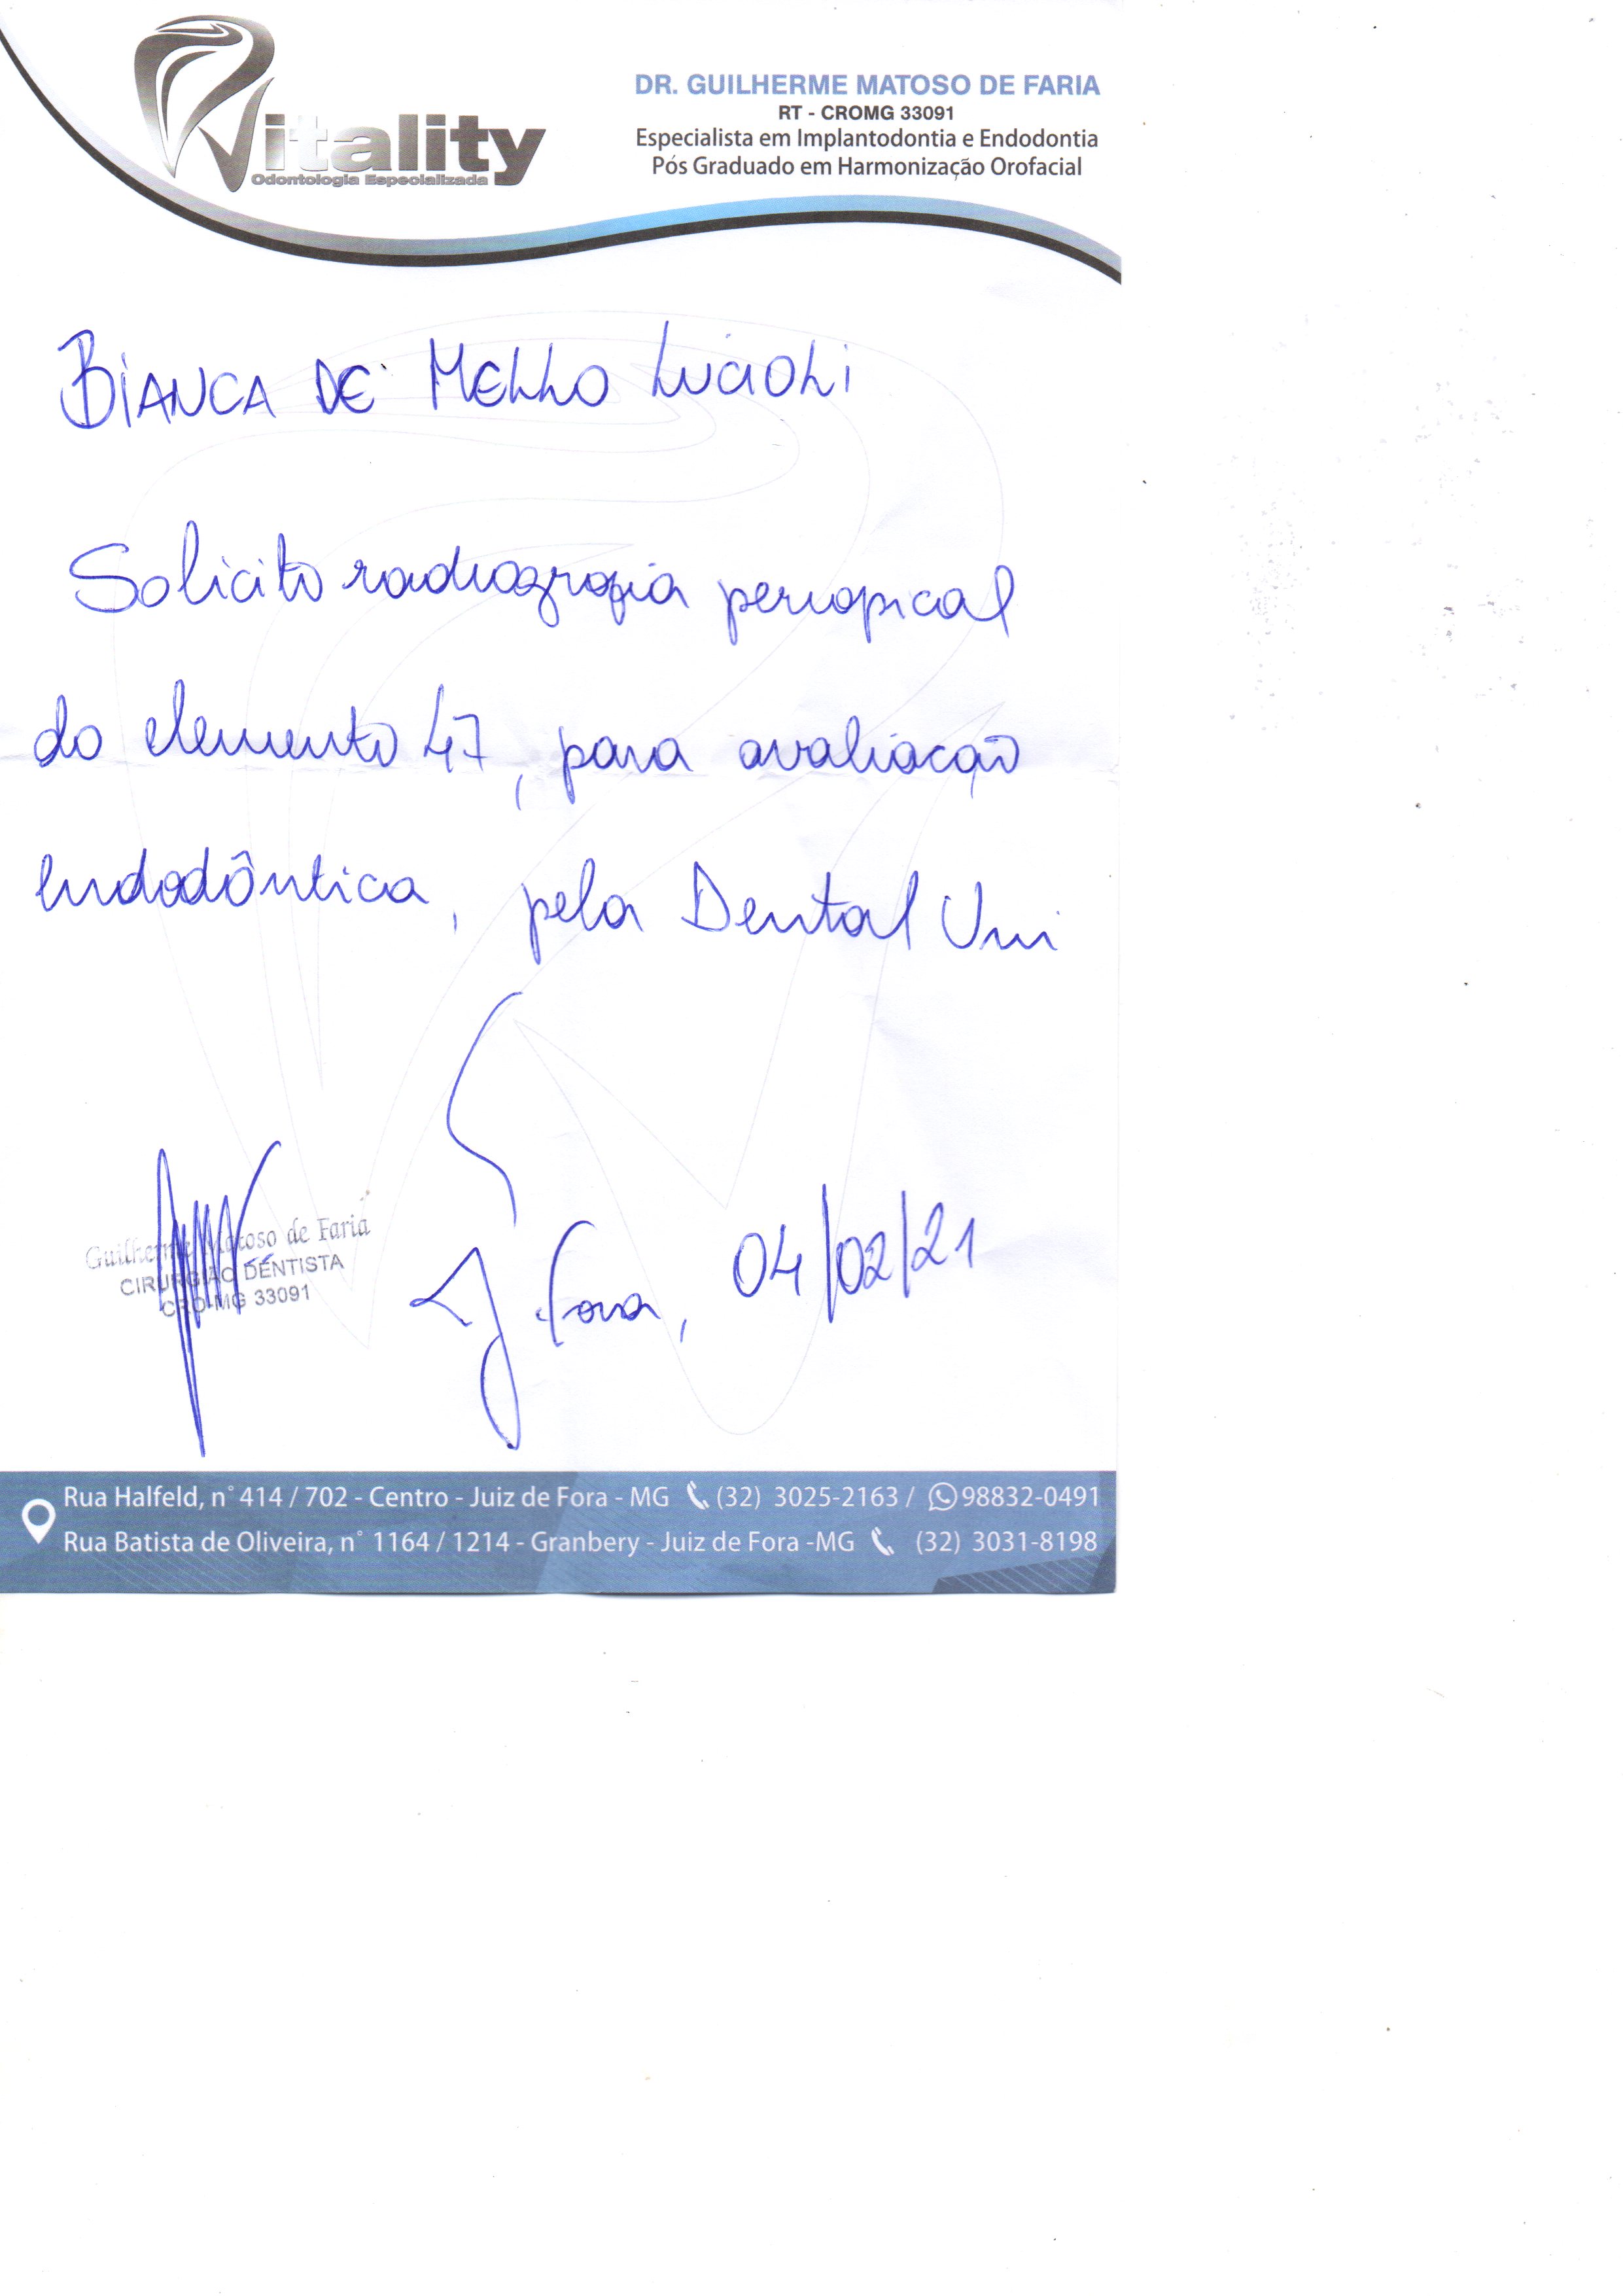 Vitality
Odontologia Especializada
DR. GUILHERME MATOSO DE FARIA
RT - CROMG 33091
Especialista em Implantodontia e Endodontia
Pós Graduado em Harmonização Orofacial
BIANCA DE MELLO LUCIOLI
Solicito radiografia periapical
do elemento 47, para avaliação
endodôntica, pela Dental Uni
Guilherme Matoso de Faria
CIRURGIÃO DENTISTA
CRO-MG 33091
J. Fora, 04/02/21
Rua Halfeld, n° 414 / 702 - Centro - Juiz de Fora - MG (32) 3025-2163 / 98832-0491
Rua Batista de Oliveira, n° 1164 / 1214 - Granbery - Juiz de Fora -MG (32) 3031-8198